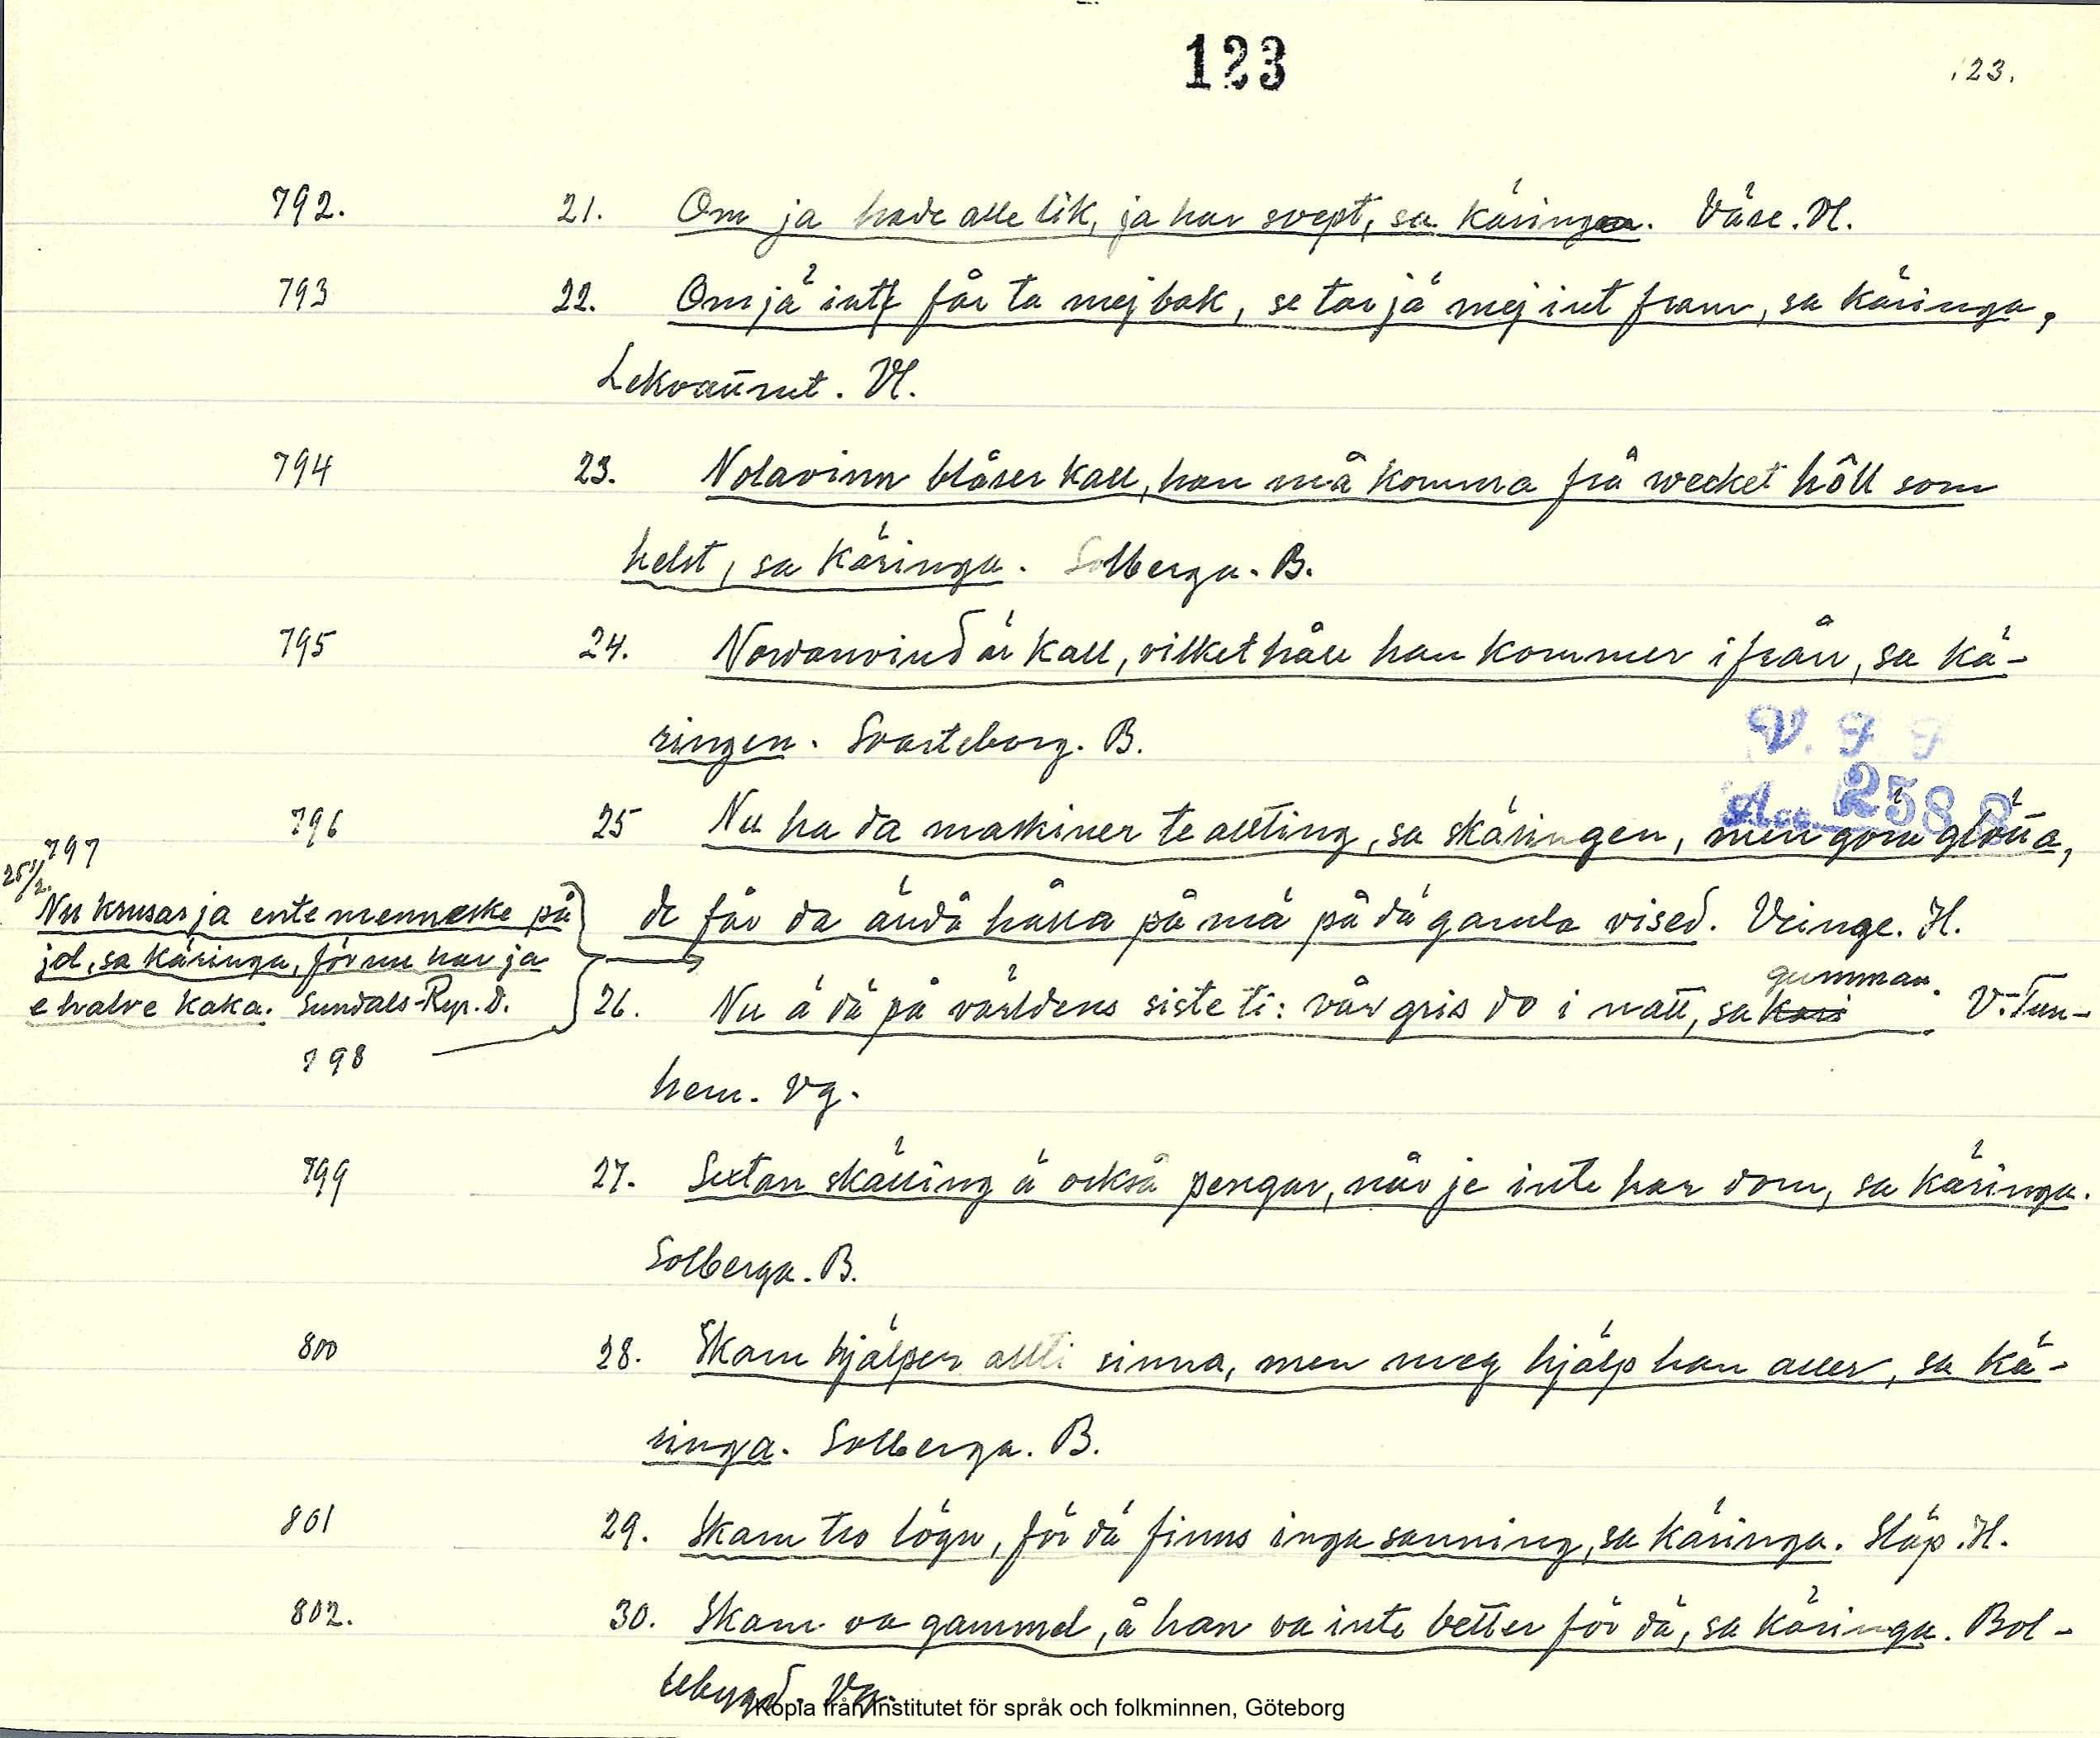 123
123.
792. 21. Om ja hade alle lik, ja har svept, sa käringa. Väse. Vl.
793 22. Om jä inte får ta mej bak, se tar jä mej int fram, sa käringa,
Lekvattnet. Vl.
794 23. Nolavinn blåser kall, han må komma frå wecket hôll som
helst, sa käringa. Solberga. B.
795 24. Nordanvind är kall, vilket håll han kommer ifrån, sa kä-
ringen. Svarteborg. B.
V. F. F
Acc. 2588
796 25 Nu ha da maskiner te allting, sa skäringen, men göra glötta,
de får da ändå hålla på mä på dä gamla vised. Veinge. H.
797
25 1/2.
Nu krusar ja ente menneske på
jol, sa käringa, för nu har ja
e halve kaka. Sundals-Ryr. D.
798 26. Nu ä dä på världens siste ti: vår gris do i natt, sa gumman. V. Tun-
hem. Vg.
799 27. Sextan skälling ä också pengar, når je inte har dom, sa käringa.
Solberga. B.
800 28. Skam hjälper allti sinna, men meg hjälp han aller, sa kä-
ringa. Solberga. B.
801 29. Skam tro lögn, för dä finns inga sanning, sa käringa. Släp. H.
802. 30. Skam va gammel, å han va inte better för dä, sa käringa. Bol-
lebygd. Vg.
Kopia från Institutet för språk och folkminnen, Göteborg